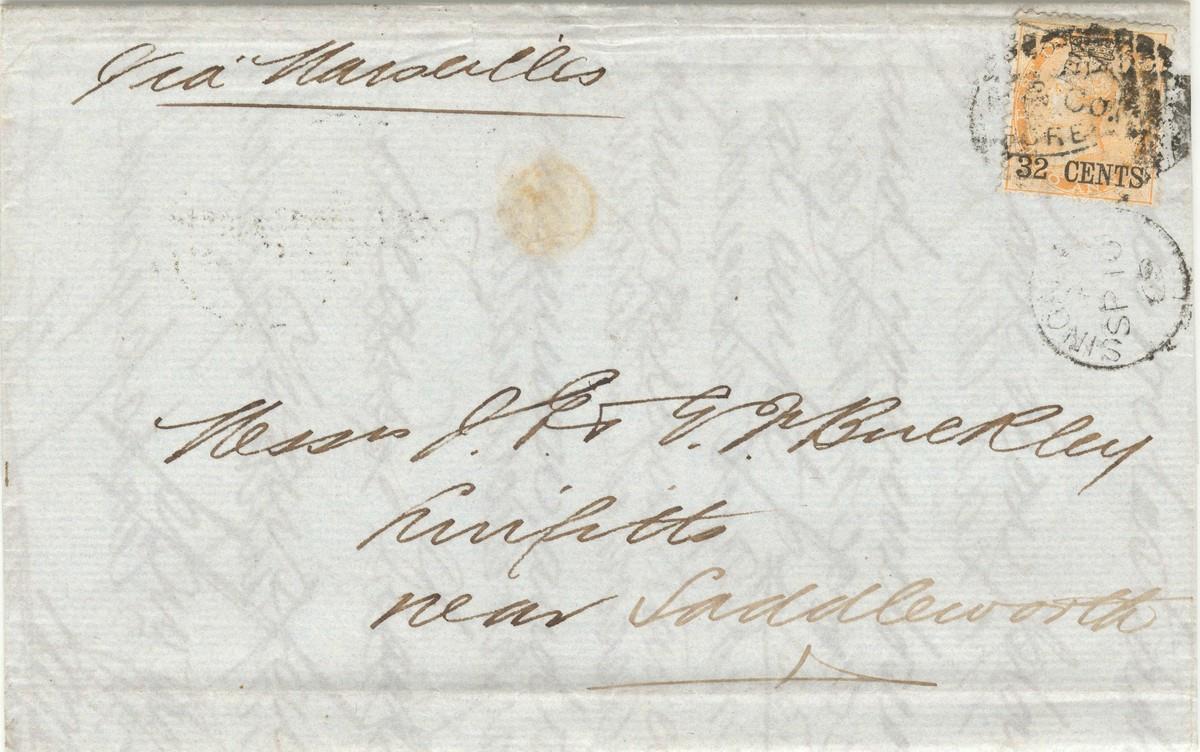 Via Marseilles
Co.
PORE
32 CENTS
SING
SP 10
Messrs J. F. & G. F. Buckley
Linfitts
near Saddleworth